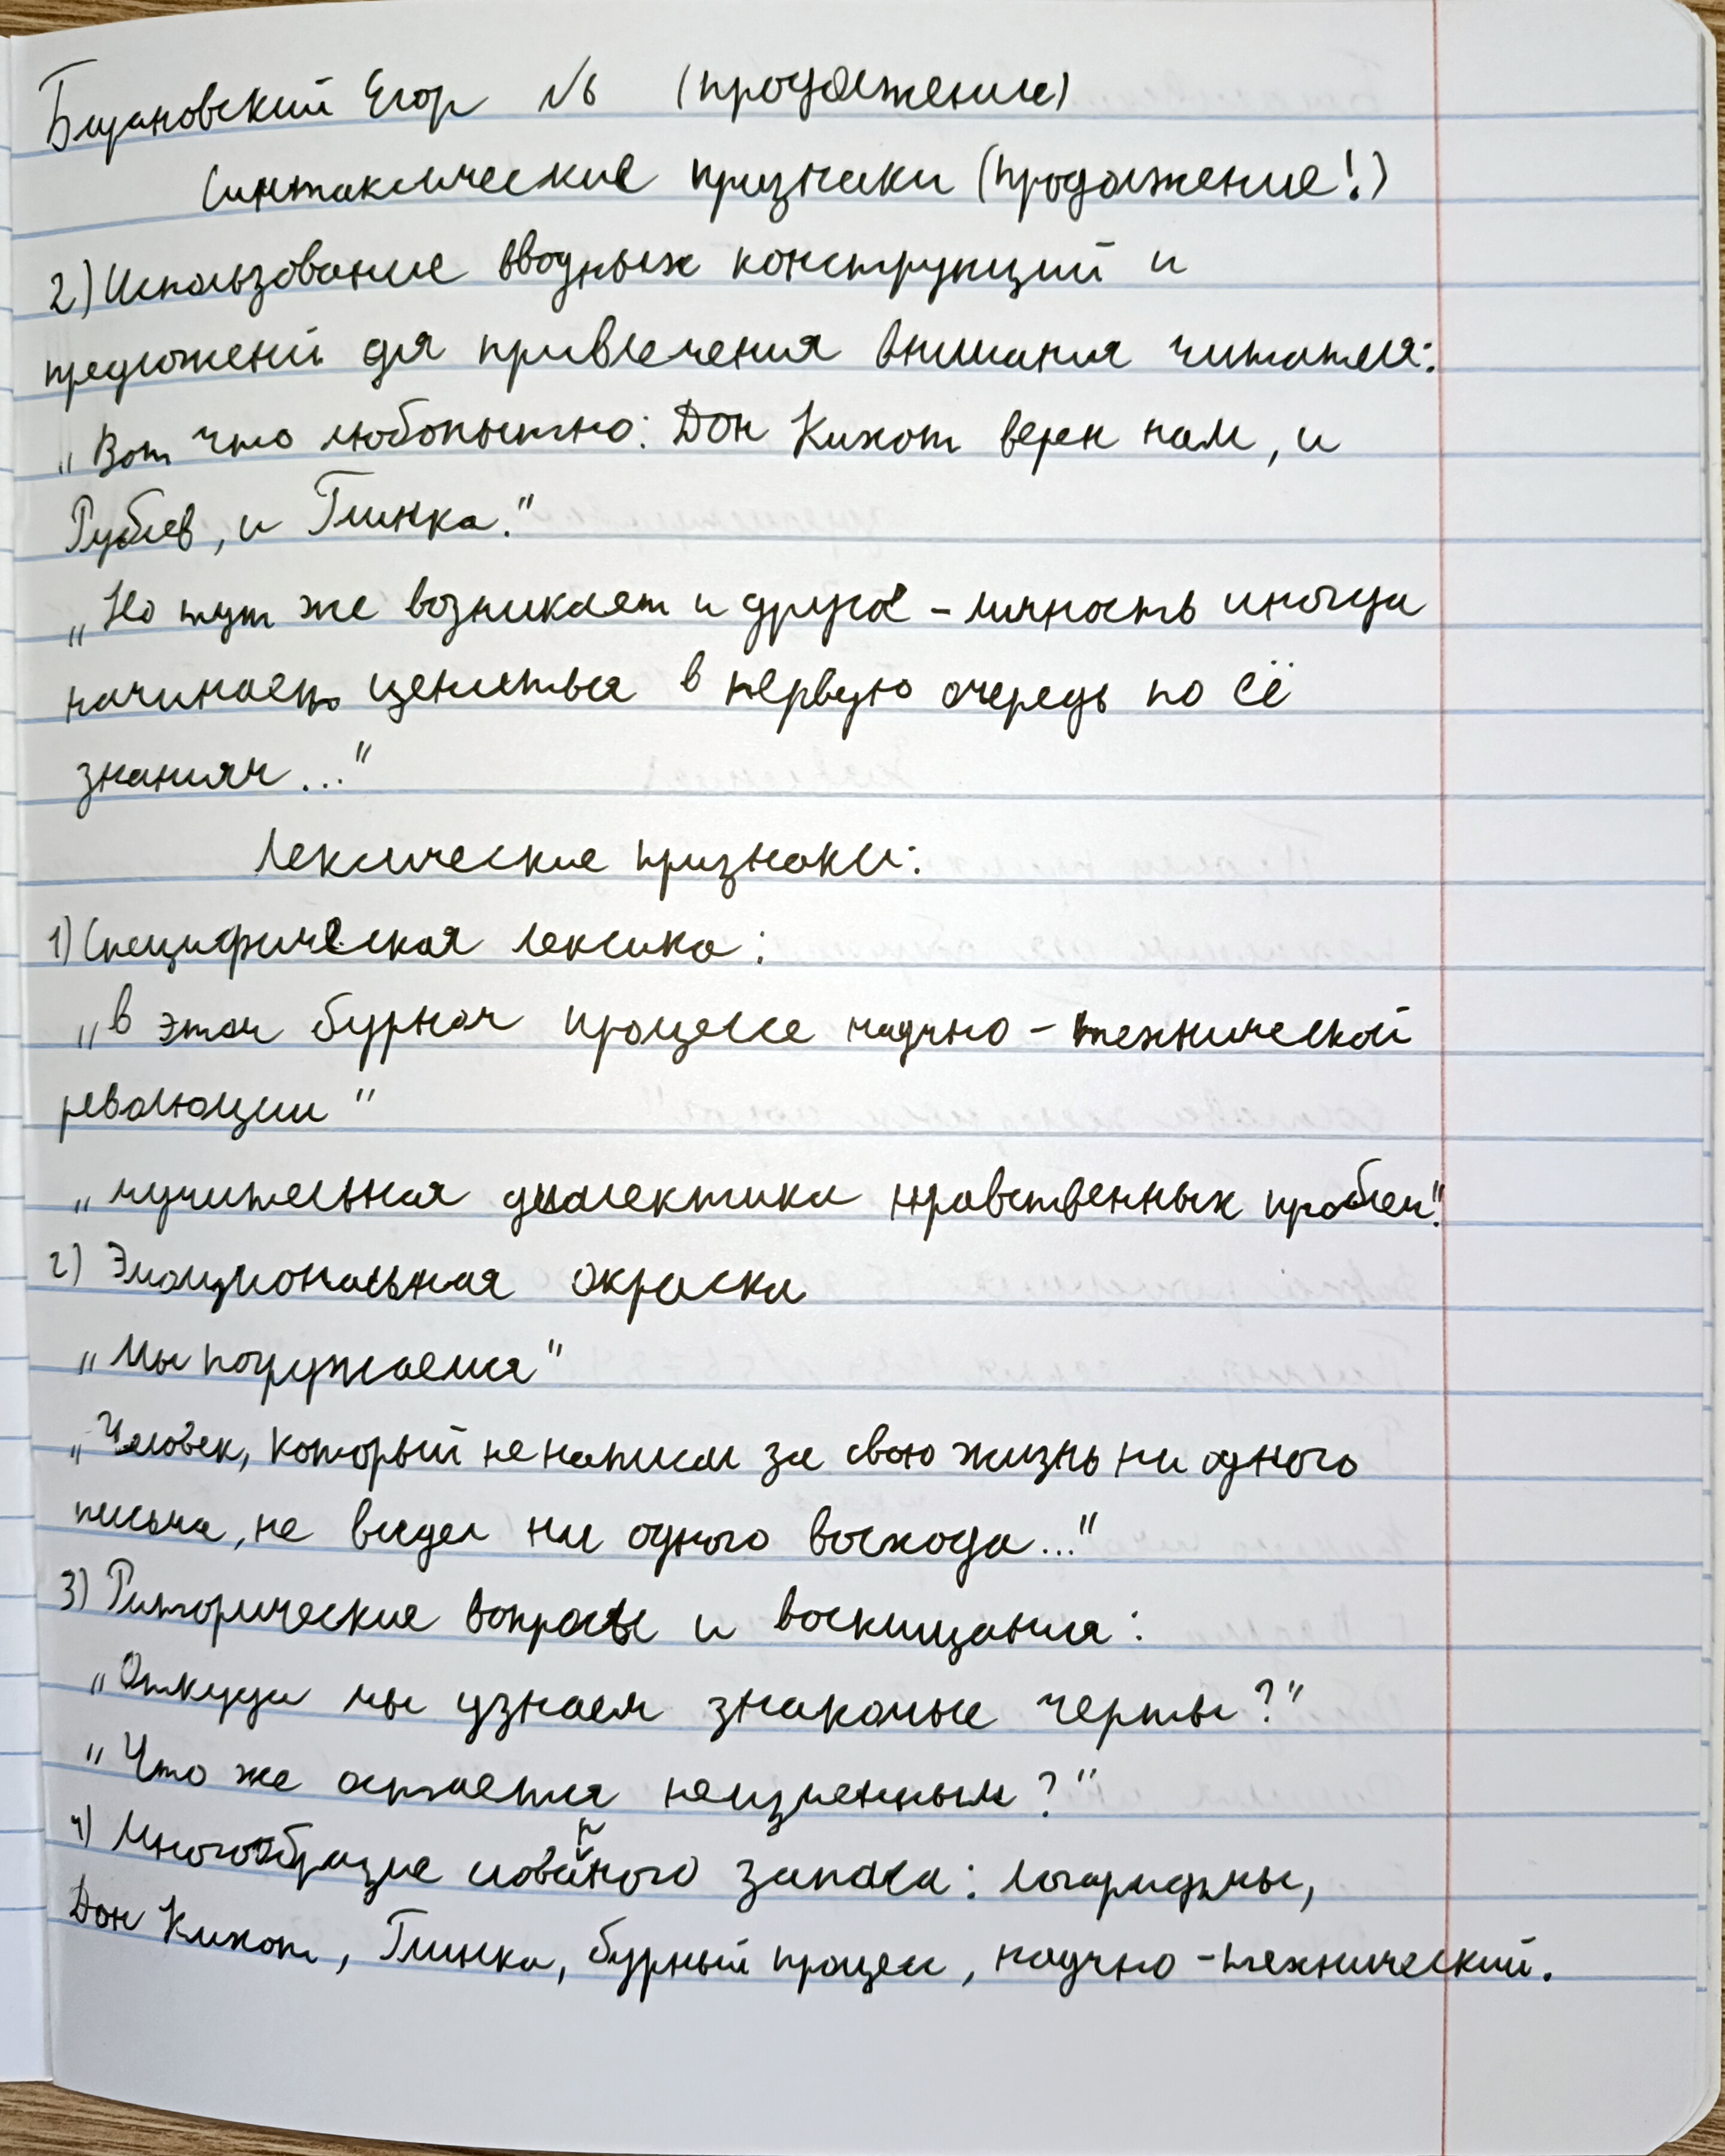 Бицановский Егор №6 (продолжение)
Синтаксические признаки (продолжение!)
2) Использование вводных конструкций и
предложений для привлечения внимания читателя:
„Вот что любопытно: Дон Кихот верен нам, и
Рублев, и Глинка."
„Но тут же возникает и другое - личность иногда
начинает цениться в первую очередь по её
знаниям..."
Лексические признаки:
1) Специфическая лексика:
„в этом бурном процессе научно - технической
революции"
„мучительная диалектика нравственных проблем".
2) Эмоциональная окраска
„Мы погружаемся"
„Человек, который не написал за свою жизнь ни одного
письма, не видел ни одного восхода..."
3) Риторические вопросы и восклицания:
„Откуда мы узнаем знакомые черты?"
„Что же остается неизменным?"
4) Многообразие словарного запаса: логарифмы,
Дон Кихот, Глинка, бурный процесс, научно - технический.